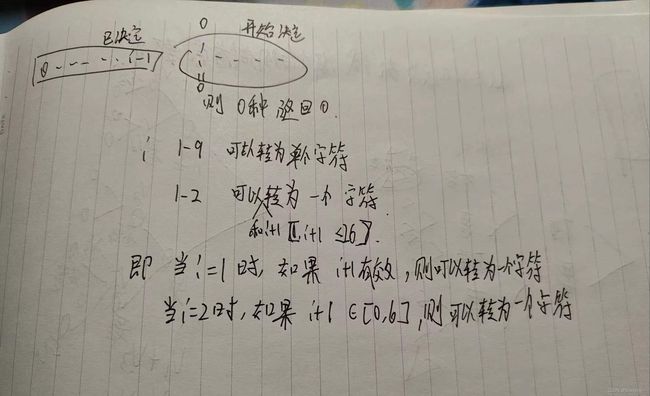 已决定 0 开始决定
0 - - - - - i-1 i - - - -
=
0
则 0种 返回0.
i 1-9 可以转为单个字符
1-2 可以转为一个字符.
和i+1 [i,i+1 ≤26].
即 当i=1时, 如果 i+1有效, 则可以转为一个字符
当i=2时, 如果 i+1 ∈[0,6], 则可以转为一个字符